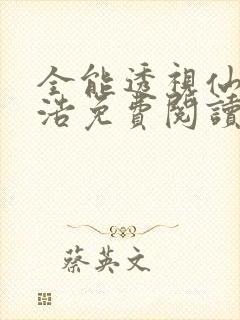 全能透視仙
浩免費閱讀
蔡英文